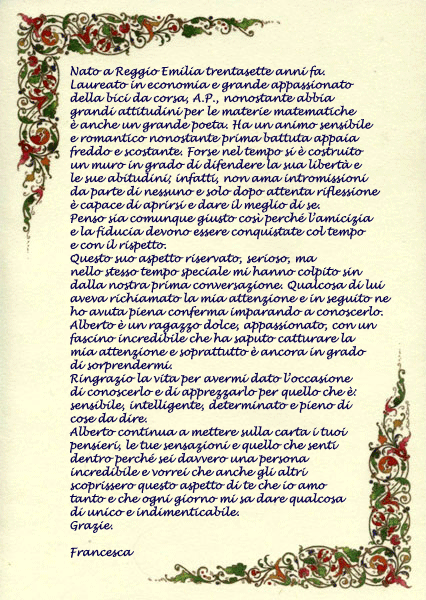 Nato a Reggio Emilia trentasette anni fa.
Laureato in economia e grande appassionato
della bici da corsa, A.P., nonostante abbia
grandi attitudini per le materie matematiche
è anche un grande poeta. Ha un animo sensibile
e romantico nonostante prima battuta appaia
freddo e scostante. Forse nel tempo si è costruito
un muro in grado di difendere la sua libertà e
le sue abitudini; infatti, non ama intromissioni
da parte di nessuno e solo dopo attenta riflessione
è capace di aprirsi e dare il meglio di se.
Penso sia comunque giusto così perché l'amicizia
e la fiducia devono essere conquistate col tempo
e con il rispetto.
Questo suo aspetto riservato, serioso, ma
nello stesso tempo speciale mi hanno colpito sin
dalla nostra prima conversazione. Qualcosa di lui
aveva richiamato la mia attenzione e in seguito ne
ho avuta piena conferma imparando a conoscerlo.
Alberto è un ragazzo dolce, appassionato, con un
fascino incredibile che ha saputo catturare la
mia attenzione e soprattutto è ancora in grado
di sorprendermi.
Ringrazio la vita per avermi dato l'occasione
di conoscerlo e di apprezzarlo per quello che è:
sensibile, intelligente, determinato e pieno di
cose da dire.
Alberto continua a mettere sulla carta i tuoi
pensieri, le tue sensazioni e quello che senti
dentro perché sei davvero una persona
incredibile e vorrei che anche gli altri
scoprissero questo aspetto di te che io amo
tanto e che ogni giorno mi sa dare qualcosa
di unico e indimenticabile.
Grazie.
Francesca